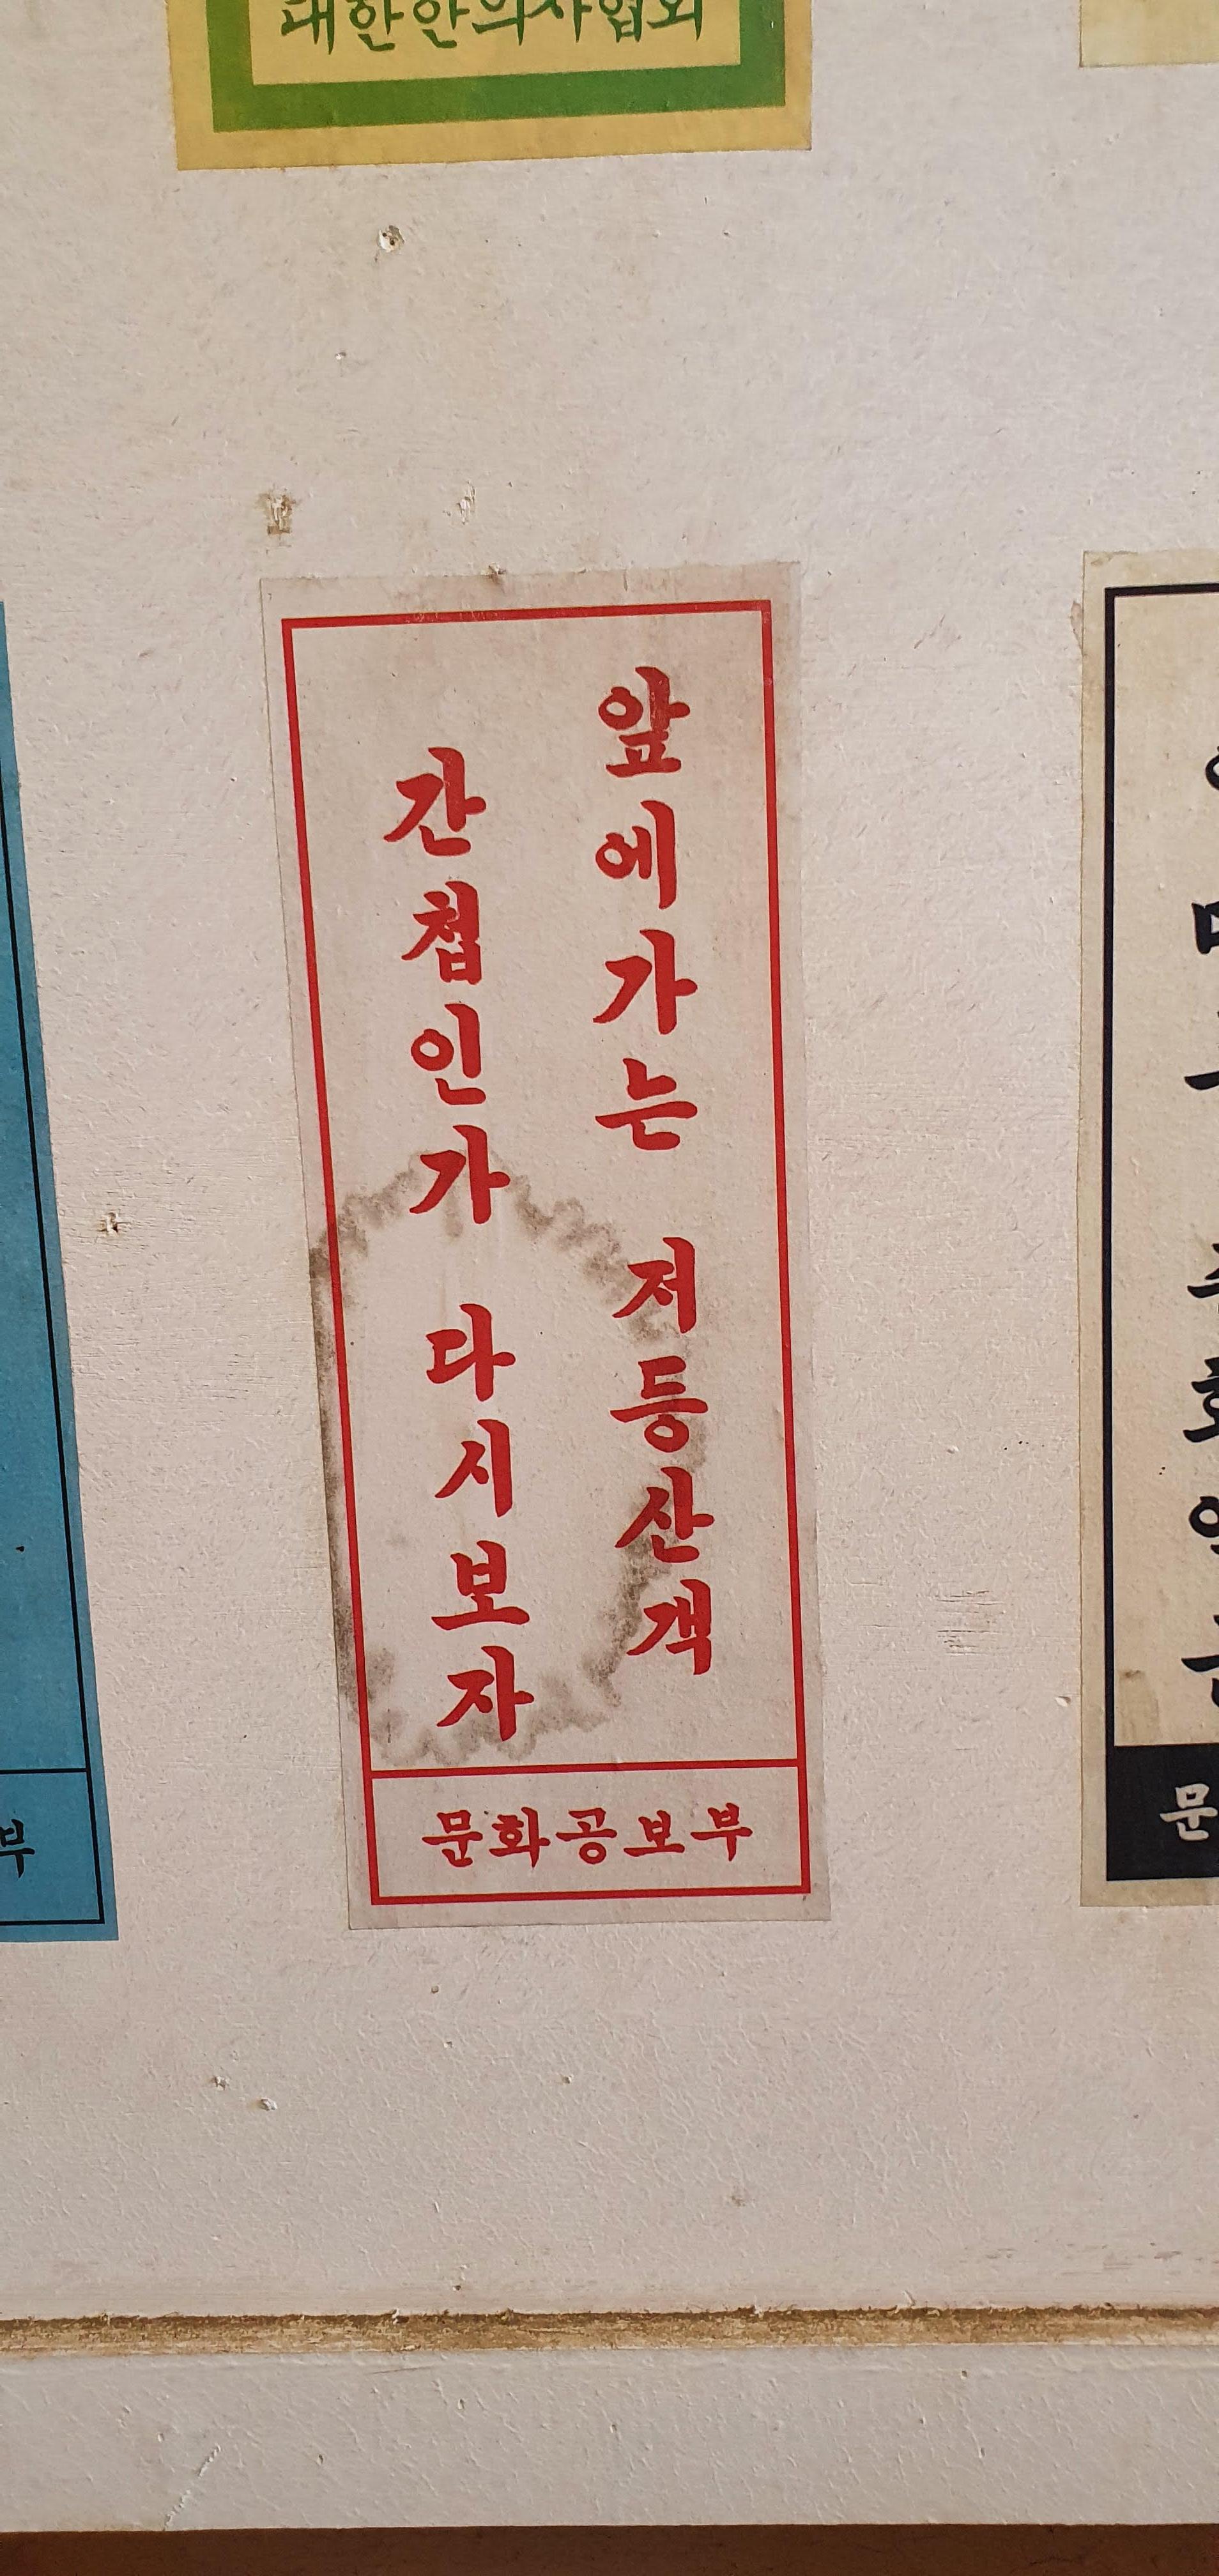 대한한의사협회
앞에가는 저등산객
간첩인가 다시보자
문화공보부
부
문